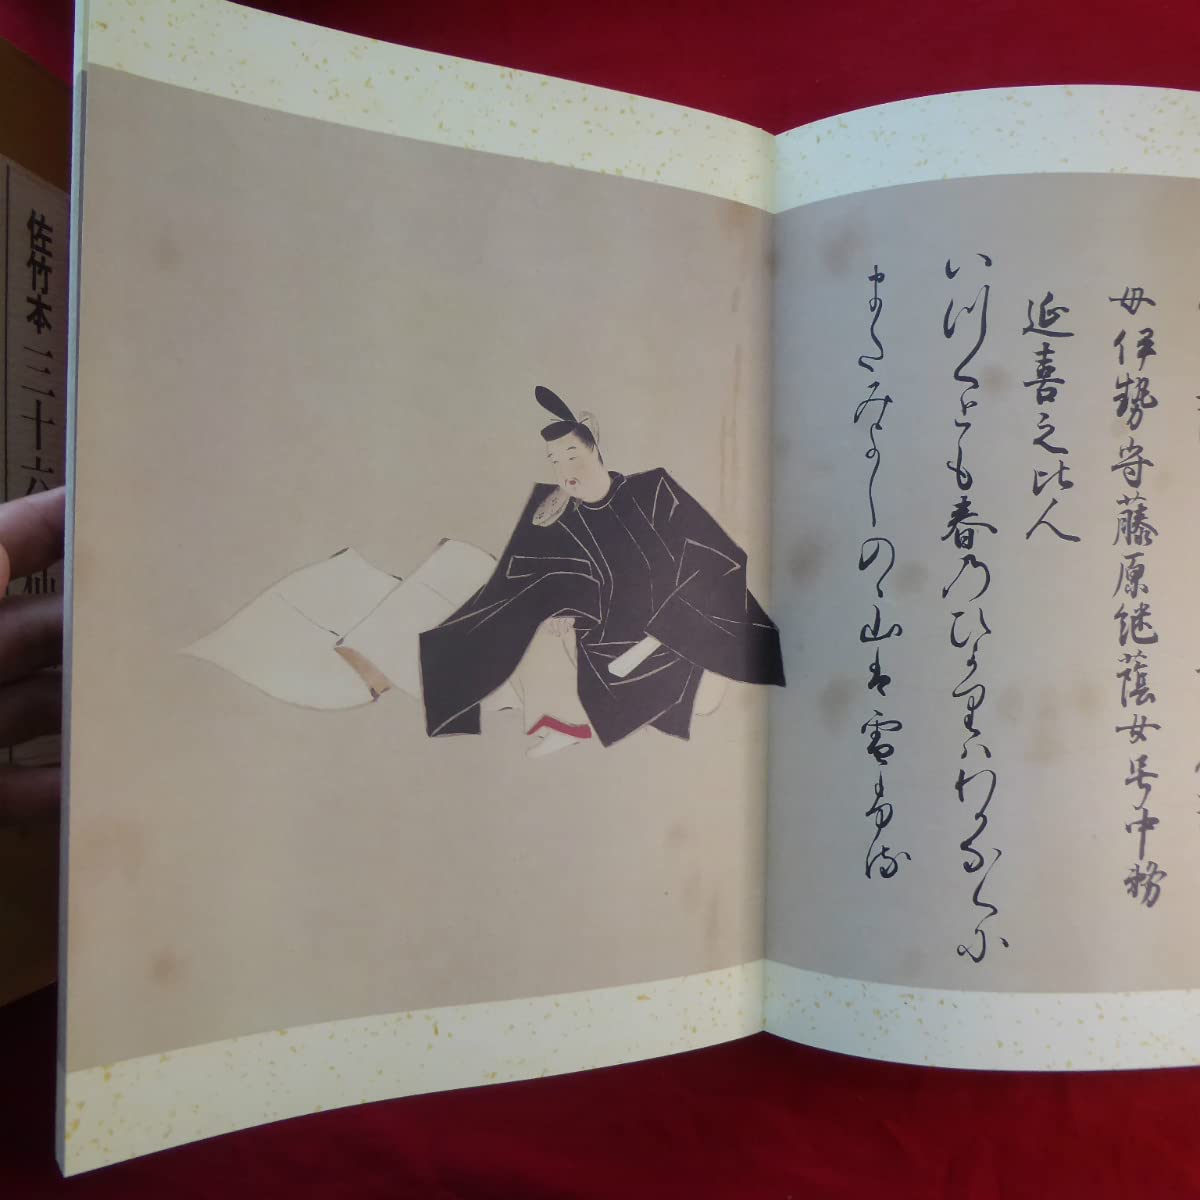 母伊勢守藤原継蔭女号中務
延喜之比人
いつくとも春乃ひかりハわかなくに
またみよしのゝ山は雪ふる
佐竹本三十六